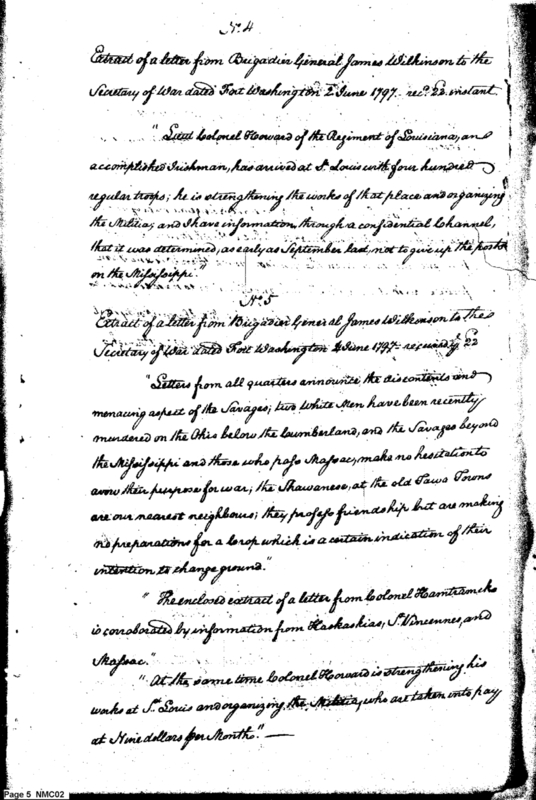 No. 4
Extract of a letter from Brigadier General James Wilkinson to the
Secretary of War dated Fort Washington 2 June 1797. recd. 22 instant
"Lieut Colonel Howard of the Regiment of Louisiana, an
accomplished Irishman, has arrived at St. Louis with four hundred
regular troops; he is strengthening the works of that place and organizing
the Militia, and I have information, through a confidential Channel,
that it was determined, as early as September last, not to give up the posts
on the Missisippi."
No. 5
Extract of a letter from Brigadier General James Wilkinson to the
Secretary of War dated Fort Washington 4 June 1797- 22
"Letters from all quarters announce the discontents and
menacing aspect of the Savages; two White Men have been recently
murdered on the Ohio below the Cumberland, and the Savages beyond
the Missisippi and those who pass Massac, make no hesitation to
avow their purpose for war; the Shawanese, at the old Tawa Towns
are our nearest neighbours; they profess friendship but are making
no preparations for a Crop which is a certain indication of their
intention to change ground."
"The enclosed extract of a letter from Colonel Hamtramcks
is corroborated by information from Kaskaskias, St. Vincennes, and
Massac."
"At the same time Colonel Howard is strengthening his
works at St. Louis and organizing the Militia, who are taken into pay
at Nine dollars per Month."—
Page 5 NMC02